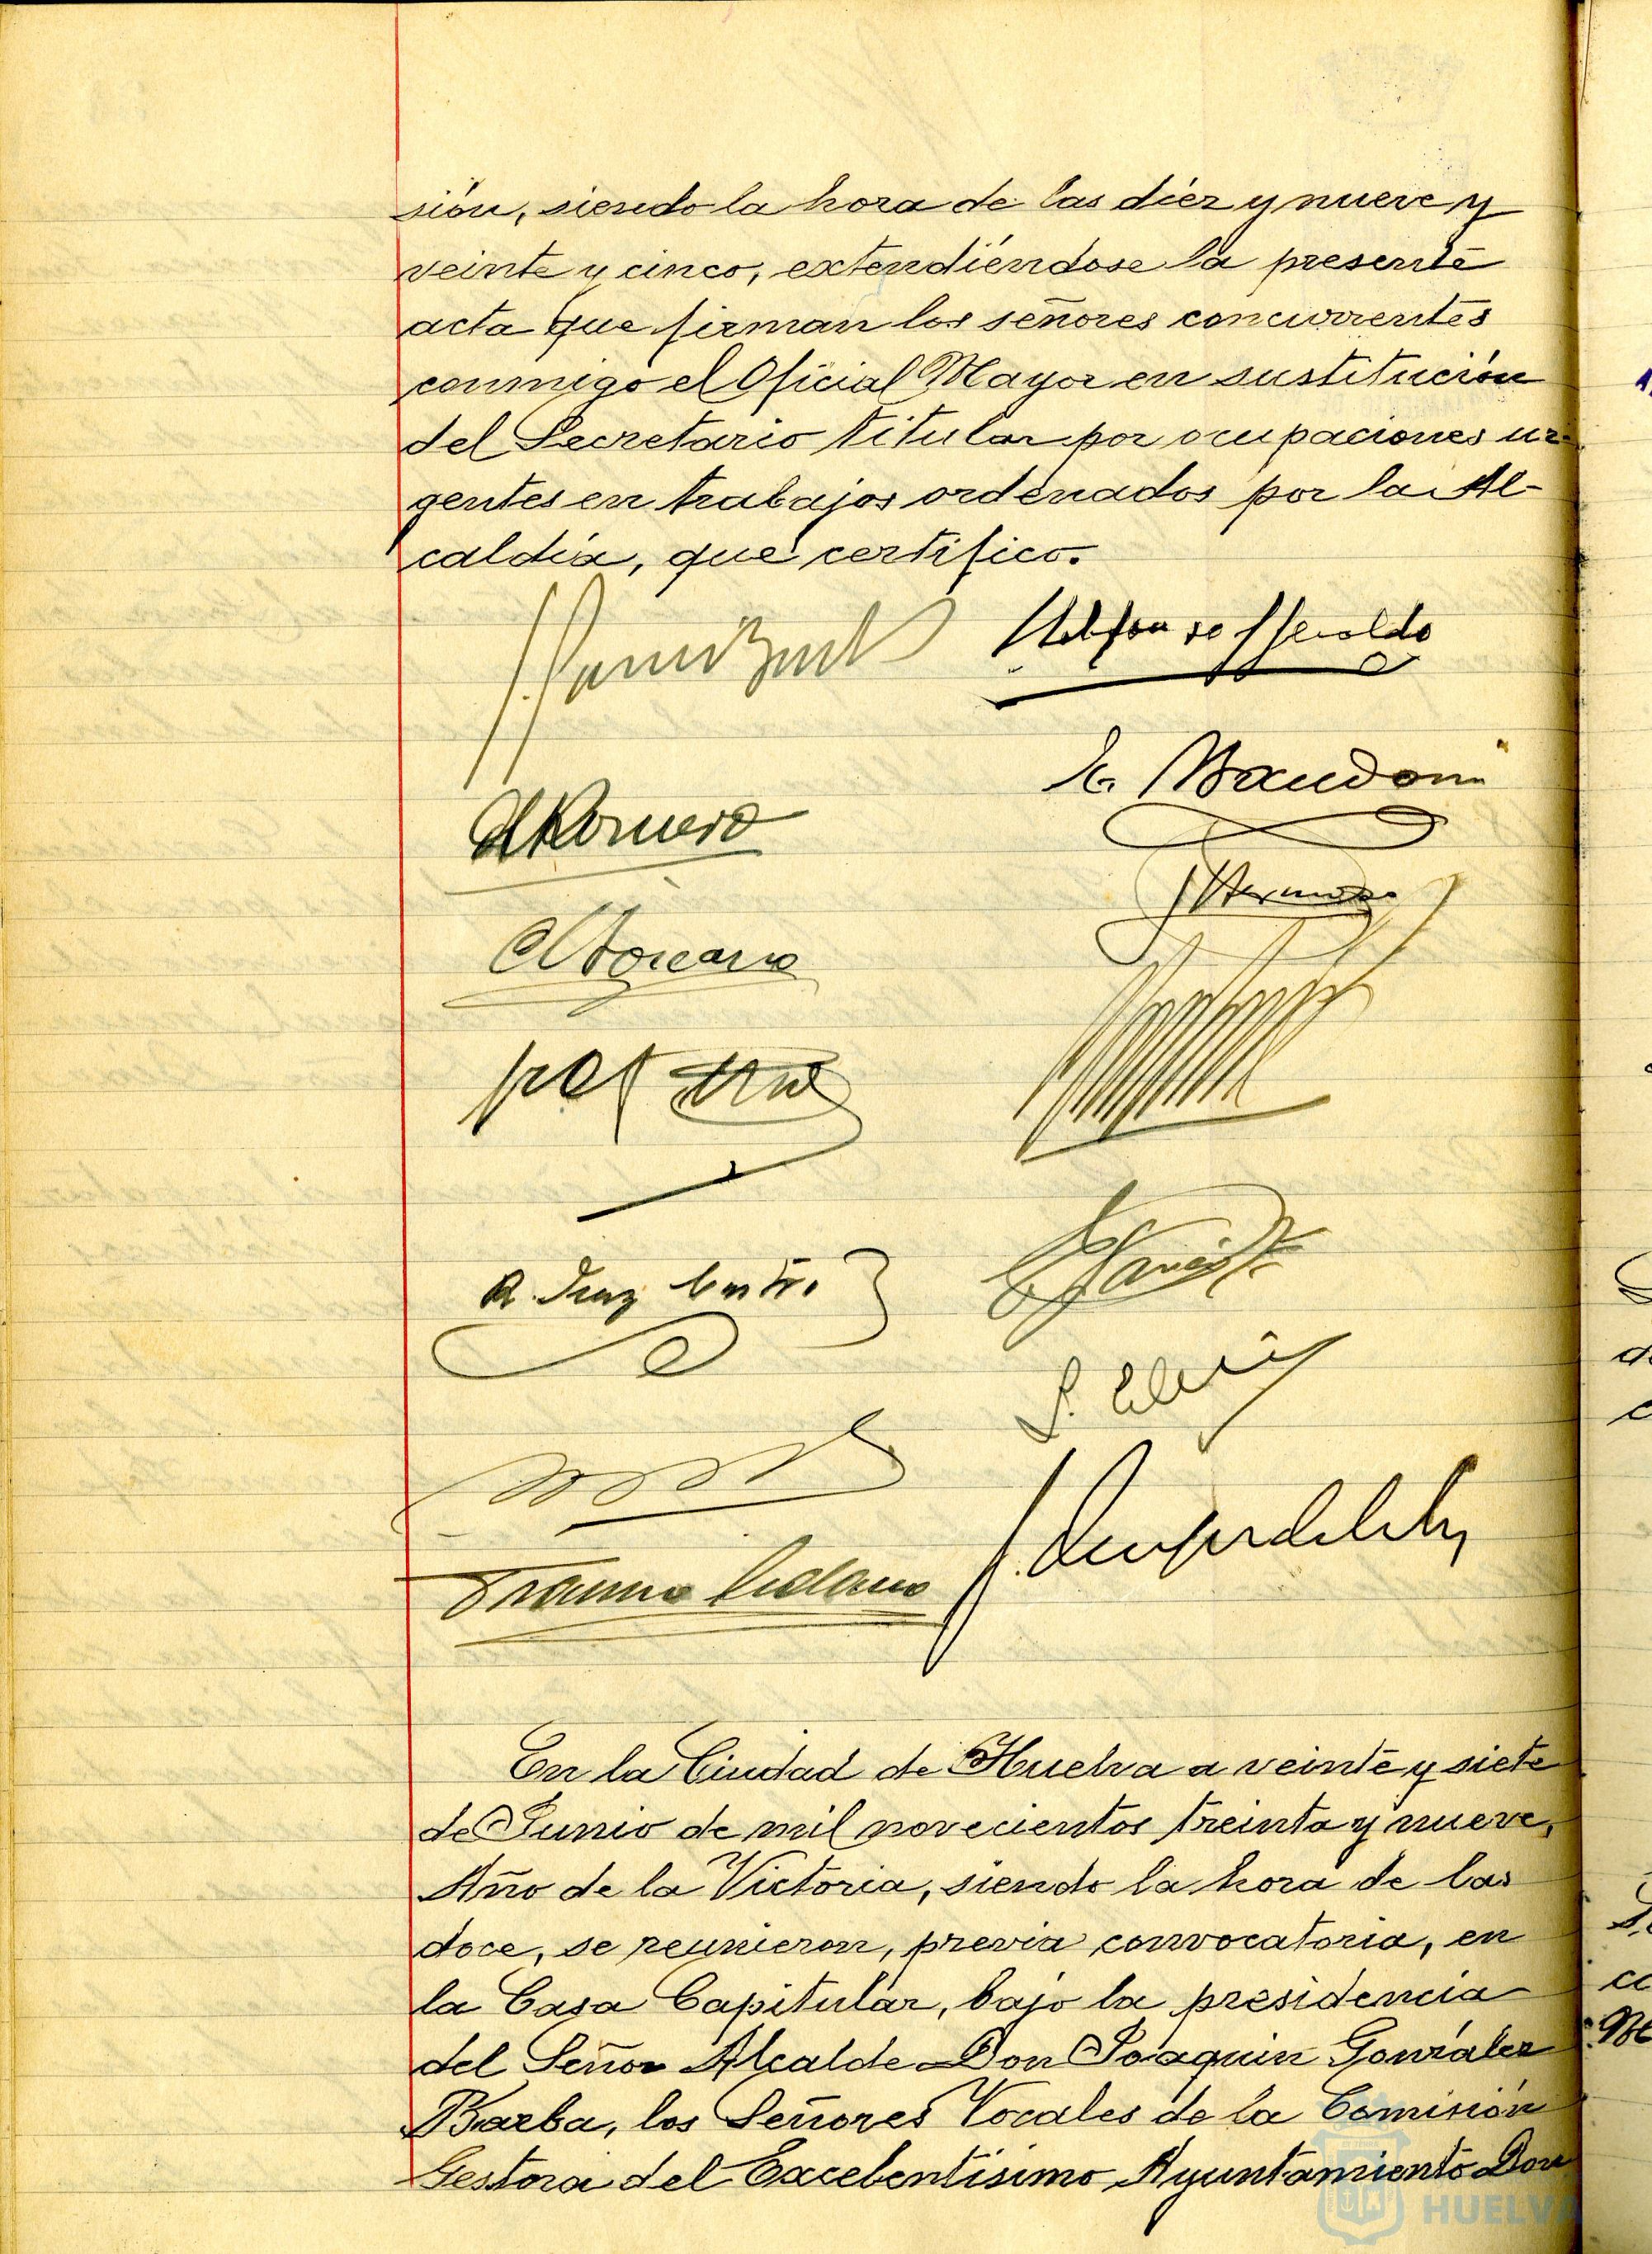 sión, siendo la hora de las diez y nueve y
veinte y cinco, extendiéndose la presente
acta que firman los señores concurrentes
conmigo el Oficial Mayor en sustitución
del Secretario titular por ocupaciones ur-
gentes en trabajos ordenados por la Al-
caldía, que certifico.
Romero
R. Diaz
En la Ciudad de Huelva a veinte y siete
de Junio de mil novecientos treinta y nueve,
Año de la Victoria, siendo la hora de las
doce, se reunieron, previa convocatoria, en
la Casa Capitular, bajo la presidencia
del Señor Alcalde Don Joaquin González
Barba, los Señores Vocales de la Comisión
Gestora del Excelentísimo Ayuntamiento Don
HUELVA